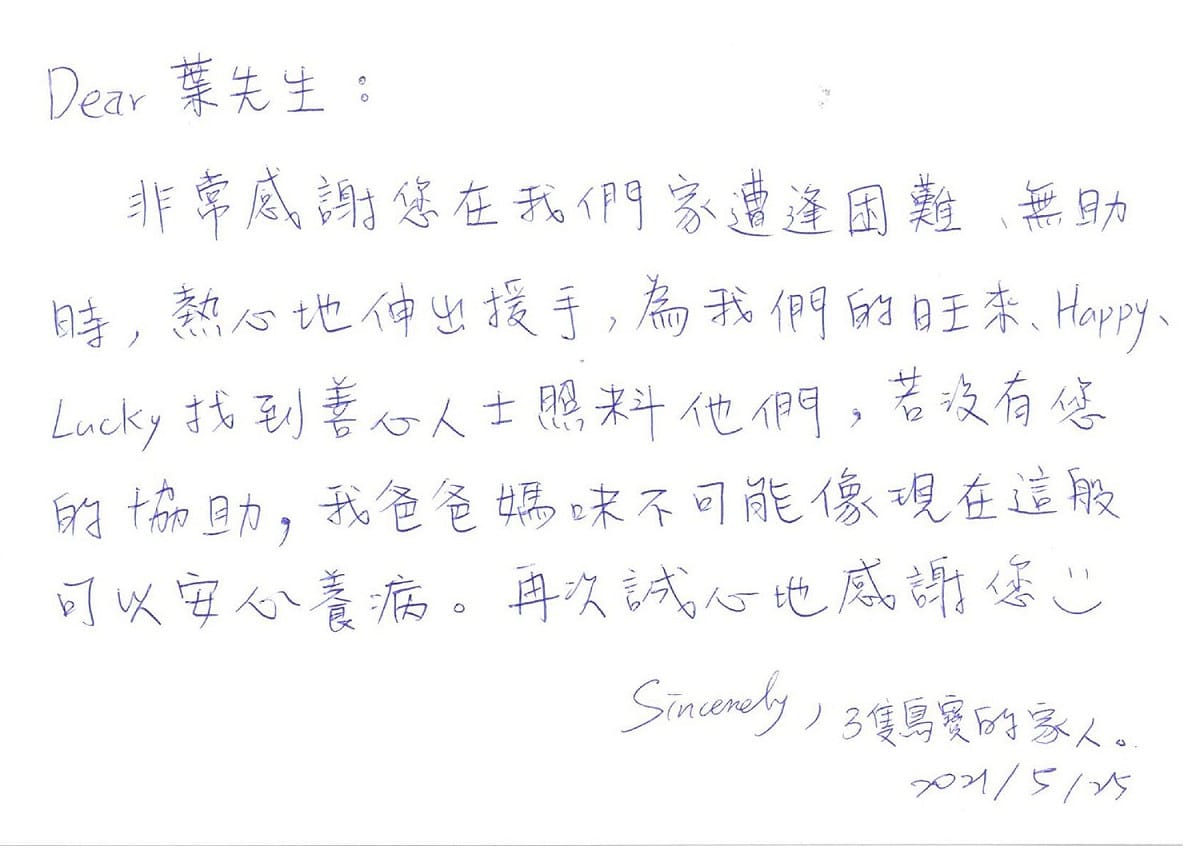 Dear 葉先生：
非常感謝您在我們家遭逢困難、無助
時，熱心地伸出援手，為我們的旺來、Happy、
Lucky找到善心人士照料他們，若沒有您
的協助，我爸爸媽咪不可能像現在這般
可以安心養病。再次誠心地感謝您
Sincerely，3隻鳥寶的家人。
2021/5/25